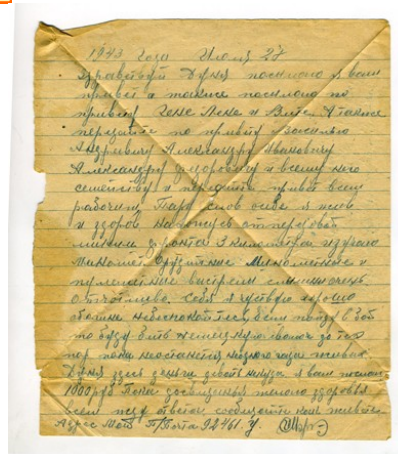 1943 года Июля 27
Здравствуй Дуня посылаю я вам
привет а также посылаю по
привету Гене Лене и Вите. А также
передайте по привету Василью
Андривичу Александру Ивановичу
Александру Федоровичу и всему его
семейству и передайте привет всем
рабочим. Пару слов о себе я жив
и здоров нахожусь от передовой
линии фронта 3 километра
минометные и
пулеметные выстрелы слышны очень
отчотливо. Себя я чуствую хорошо
обо мне не беспокойтесь если пойду в бой
то буду бить немецкую сволоч до тех
пор пока неостанется ниодного гада живым.
Дуня здесь деньги девать некуда я вам послал
1000 руб Пока досвидания много здоровья
всем жду ответа сообщайте как живете.
Адрес Мой П/Почта 92461. У.